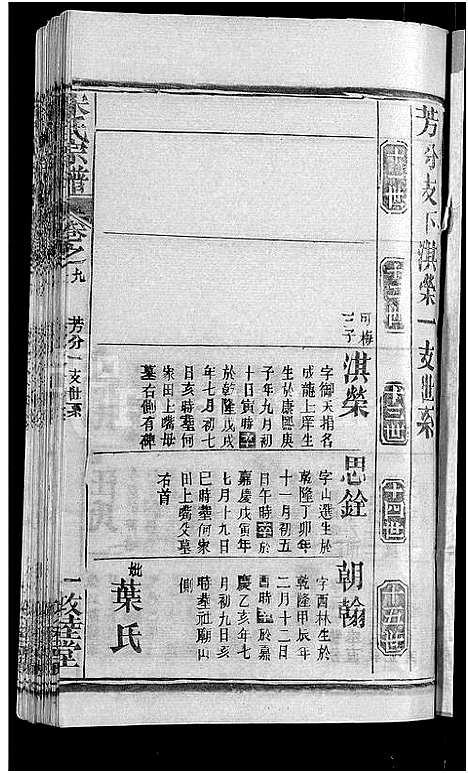 芳分支下淇榮一支世系
十一世
十二世
十三世
十四世
十五世
可梅
三子
淇榮
字御天捐名
成龍上庠生
生於康熙庚
子年九月初
十日寅時卒
於乾隆戊戌
年七月初七
亥時葬何
家田上嘴母
墓右側有碑
思銓
字山選生於
乾隆丁卯年
十一月初五
日午時卒於
嘉慶戊寅年
七月十九日
巳時葬何家
田上嘴父墓
右首
朝翰
字西林生於
乾隆甲辰年
二月十二日
酉時卒於嘉
慶乙亥年七
月初九日亥
時葬社廟山
側
妣
葉氏
氏宗譜
卷之九
芳分一支世系
一
敦達堂